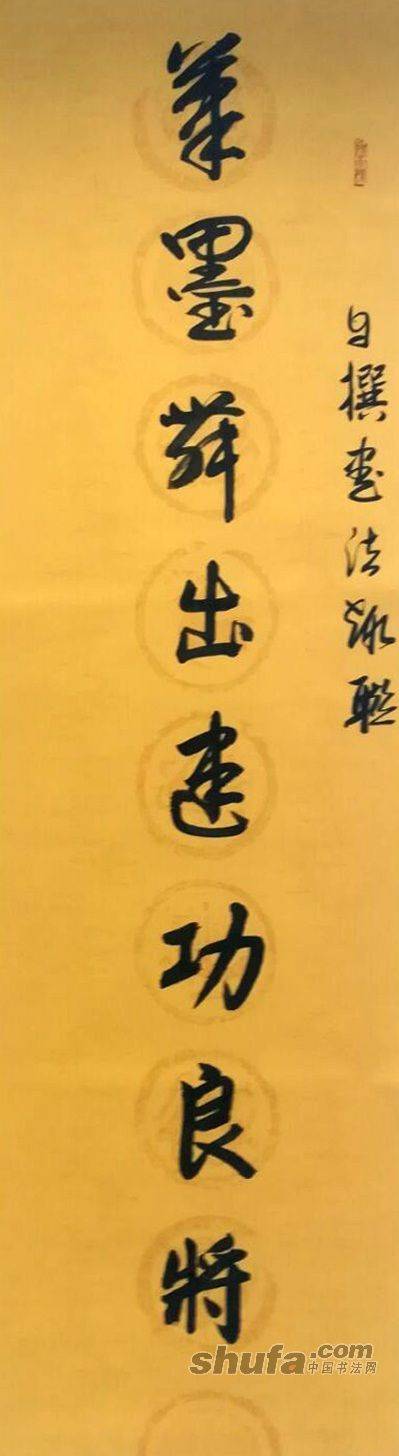 自撰书法联
筆墨舞出建功良將
shufa.com
中国书法网